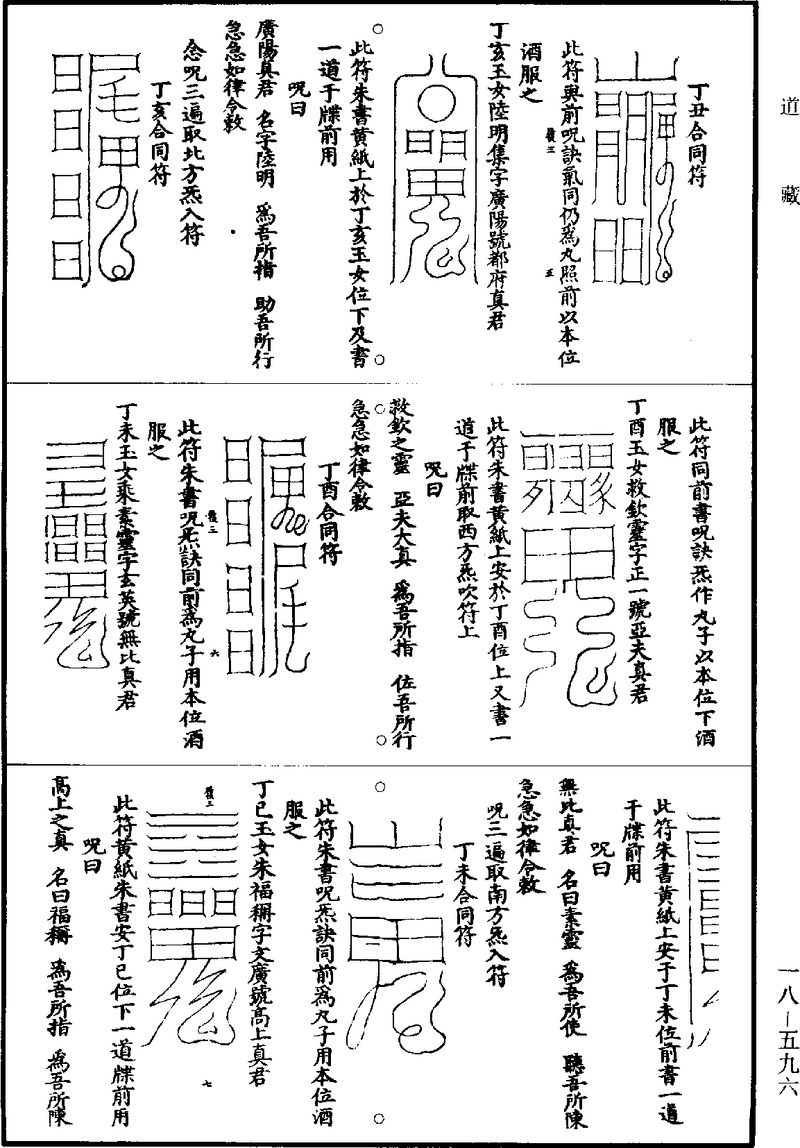 道藏
丁丑合同符
此符與前呪訣氣同仍爲丸照前以本位
酒服之
丁亥玉女陸明集字廣陽號都府真君
此符朱書黃紙上於丁亥玉女位下及書
一道于牒前用
呪曰
廣陽真君 名字陸明 爲吾所指 助吾所行
急急如律令敕
念呪三遍取北方炁入符
丁亥合同符
此符同前書呪訣炁作丸子以本位下酒
服之
丁酉玉女救欽靈字正一號亞夫真君
此符朱書黃紙上安於丁酉位上又書一
道于牒前取西方炁吹符上
呪曰
救欽之靈 亞夫大真 爲吾所指 佐吾所行
急急如律令敕
丁酉合同符
此符朱書呪炁訣同前爲丸子用本位酒
服之
丁未玉女乘素靈字玄英號無比真君
此符朱書黃紙上安于丁未位前書一道
于牒前用
呪曰
無比真君 名曰素靈 爲吾所使 聽吾所陳
急急如律令敕
呪三遍取南方炁入符
丁未合同符
此符朱書呪炁訣同前爲丸子用本位酒
服之
丁巳玉女朱福稱字文廣號高上真君
此符黃紙朱書安丁巳位下一道牒前用
呪曰
高上之真 名曰福稱 爲吾所指 爲吾所陳
一八—五九六